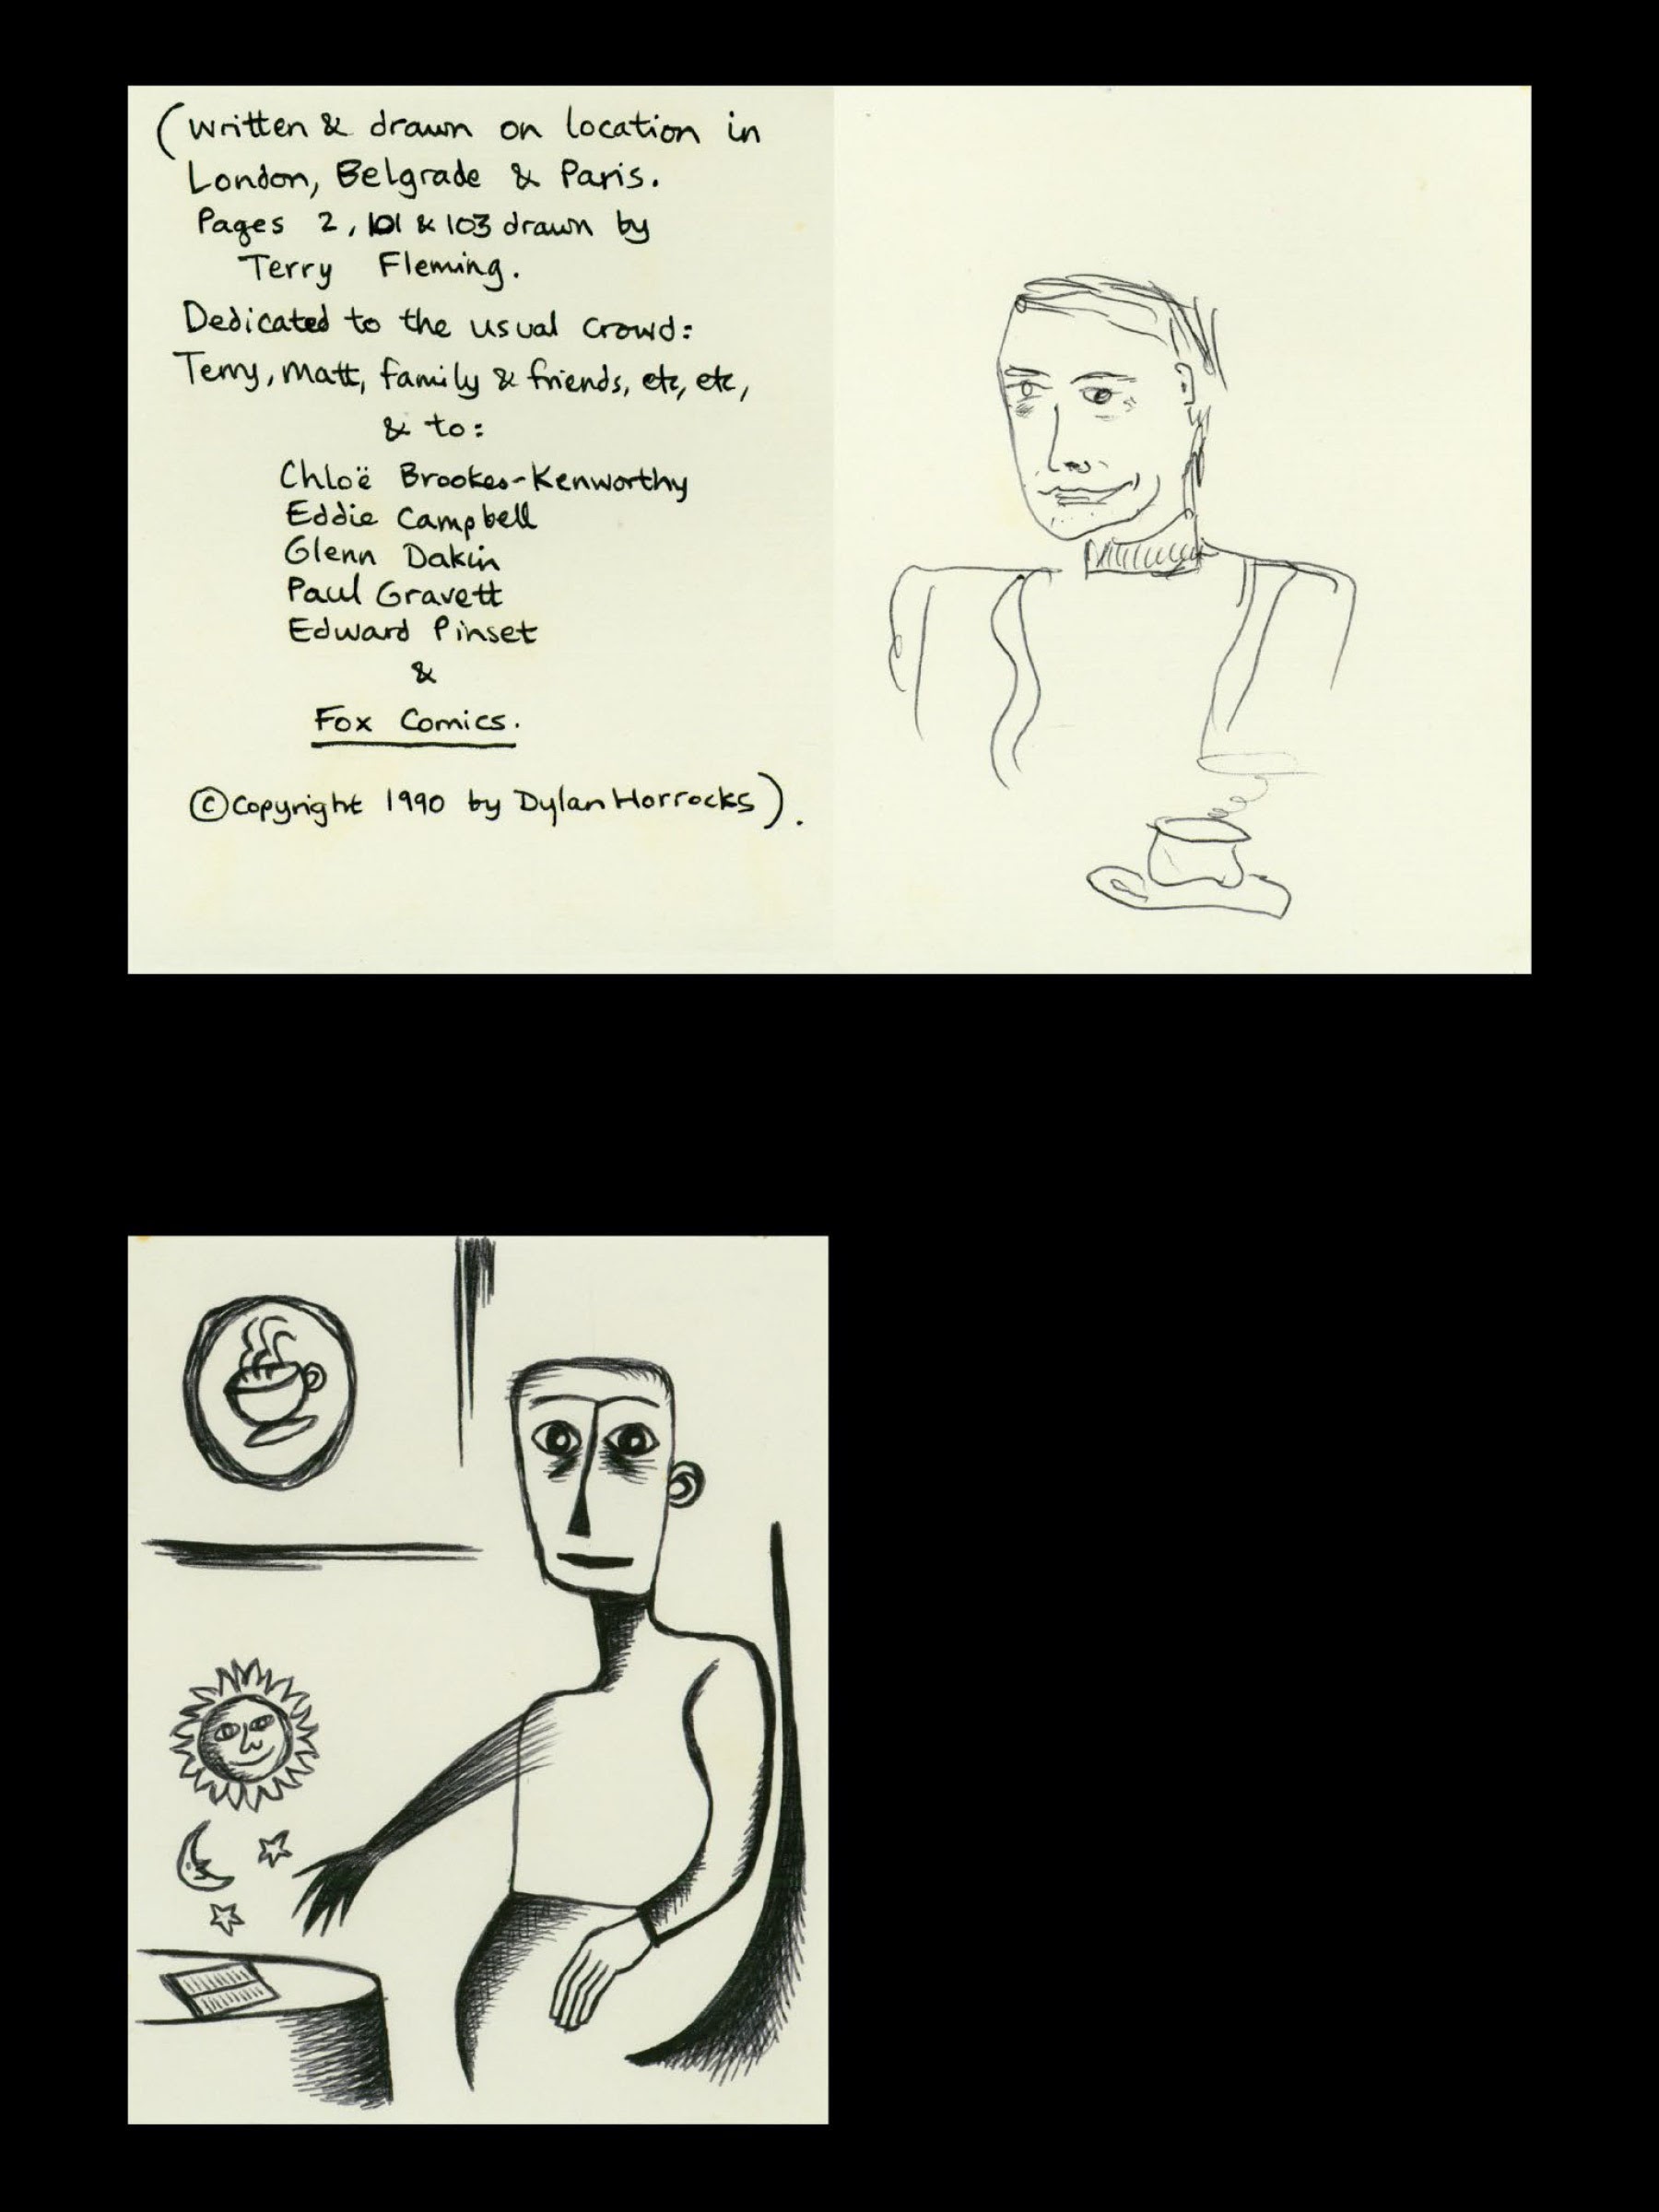 (written & drawn on location in
London, Belgrade & Paris.
Pages 2, 101 & 103 drawn by
Terry Fleming.
Dedicated to the usual crowd:
Terry, Matt, family & friends, etc, etc,
& to:
Chloë Brookes-Kenworthy
Eddie Campbell
Glenn Dakin
Paul Gravett
Edward Pinset
&
Fox Comics.
©Copyright 1990 by Dylan Horrocks).